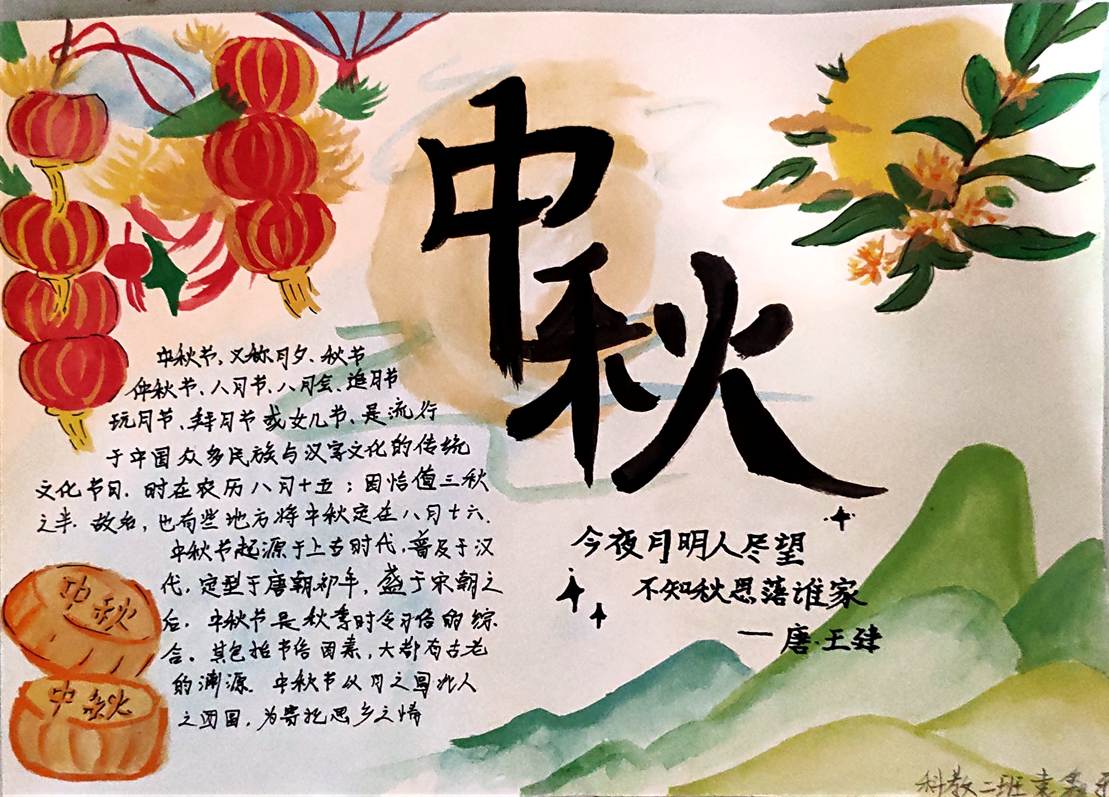 中秋
中秋节、又称月夕、秋节
仲秋节、八月节、八月会、追月节
玩月节、拜月节或女儿节、是流行
于中国众多民族与汉字文化的传统
文化节日.时在农历八月十五；因恰值三秋
之半.故名，也有些地方将中秋定在八月十六.
中秋节起源于上古时代，普及于汉
代，定型于唐朝初年，盛于宋朝之
后.中秋节是秋季时令习俗的综
合，其包括节俗因素，大都有古老
的渊源。中秋节以月之圆兆人
之团圆，为寄托思乡之情
今夜月明人尽望
不知秋思落谁家
——唐·王建
中秋
中秋
科教二班袁